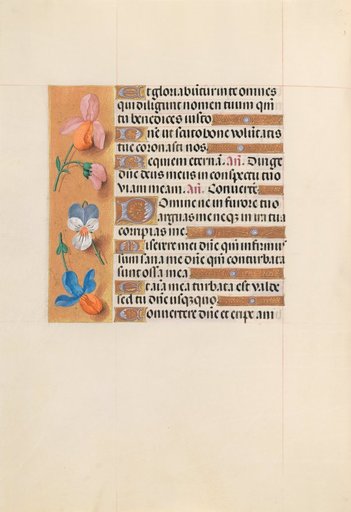 Et gloriabũtur in te omnes
qui diligunt nomen tuum qm̃
tu benedices iusto.
Dñe ut scuto bone volũtatis
tue coronasti nos.
Requiem eternã. Añ. Dirige
dñe deus meus in conspectu tuo
viam meam. Añ. Convertẽ
Domine ne in furore tuo
arguas me neq; in ira tua
corripias me.
Miserere mei dñe qm̃ infirmus
sum sana me dñe qm̃ conturbata
sunt ossa mea
Et aĩa mea turbata est valde
sed tu dñe usq;quo
Convertere dñe et eripe am̃